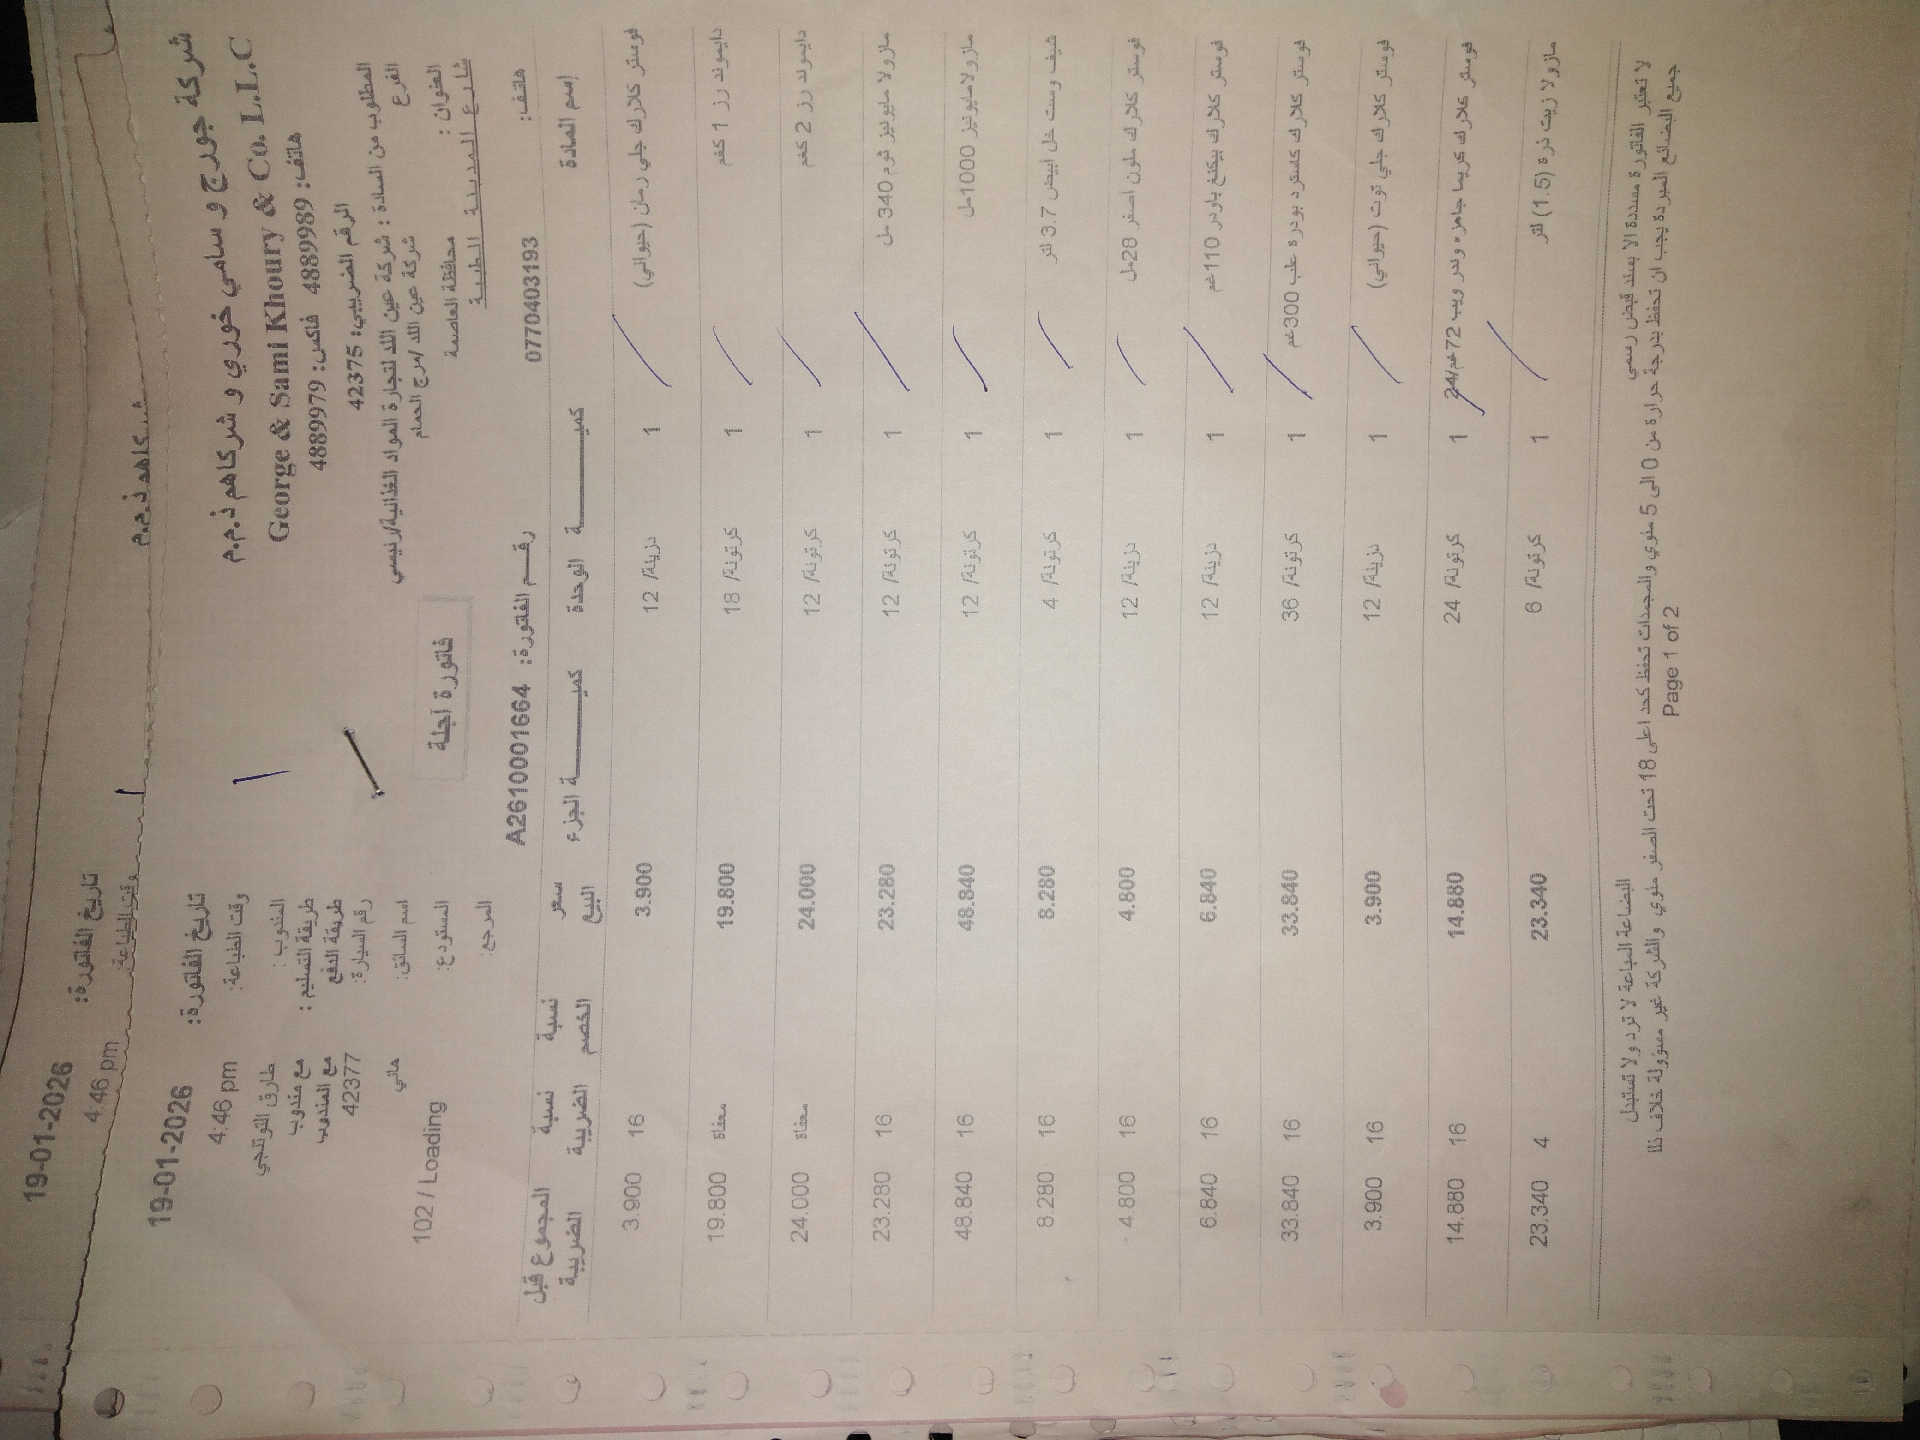 19-01-2026 تاريخ الفاتورة:
4:46 pm وقت الطباعة:
شركاهم ذ.م.م
شركة جورج و سامي خوري و شركاهم ذ.م.م
George & Sami Khoury & Co. L.L.C
هاتف: 4889989 فاكس: 4889979
الرقم الضريبي: 42375
المطلوب من السادة : شركة عين اللد لتجارة المواد الغذائية/رئيسي
الفرع شركة عين اللد /مرج الحمام
العنوان : محافظة العاصمة
شارع المدينة الطبية
هاتف: 0770403193
تاريخ الفاتورة: 19-01-2026
وقت الطباعة: 4:46 pm
المندوب : طارق التوتنجي
طريقة التسليم : مع مندوب
طريقة الدفع مع المندوب
رقم السيارة: 42377
اسم السائق: هاني
المستودع: 102 / Loading
المرجع:
فاتورة آجلة
رقم الفاتورة: A2610001664
إسم المادة كميـة الوحدة كميـة الجزء سعر البيع نسبة الخصم نسبة الضريبة المجموع قبل الضريبة
فوستر كلارك جلي رمان (حيواني) 1 دزينة/ 12 3.900 16 3.900
دايموند رز 1 كغم 1 كرتونة/ 18 19.800 معفاة 19.800
دايموند رز 2 كغم 1 كرتونة/ 12 24.000 معفاة 24.000
مازولا مايونيز ثوم 340 مل 1 كرتونة/ 12 23.280 16 23.280
مازولا مايونيز 1000مل 1 كرتونة/ 12 48.840 16 48.840
شيف وست خل ابيض 3.7 لتر 1 كرتونة/ 4 8.280 16 8.280
فوستر كلارك ملون اصفر 28مل 1 دزينة/ 12 4.800 16 4.800
فوستر كلارك بيكنغ باودر 110غم 1 دزينة/ 12 6.840 16 6.840
فوستر كلارك كاسترد بودرة علب 300غم 1 كرتونة/ 36 33.840 16 33.840
فوستر كلارك جلي توت (حيواني) 1 دزينة/ 12 3.900 16 3.900
فوستر كلارك كريما جاهزه وندر ويب 72غم/24 1 كرتونة/ 24 14.880 16 14.880
مازولا زيت ذرة (1.5) لتر 1 كرتونة/ 6 23.340 4 23.340
لا تعتبر الفاتورة مسددة الا بسند قبض رسمي البضاعة المباعة لا ترد ولا تستبدل
جميع البضائع المبردة يجب ان تحفظ بدرجة حرارة من 0 الى 5 مئوي والمجمدات تحفظ كحد اعلى 18 تحت الصفر مئوي والشركة غير مسؤولة خلاف ذلك
Page 1 of 2